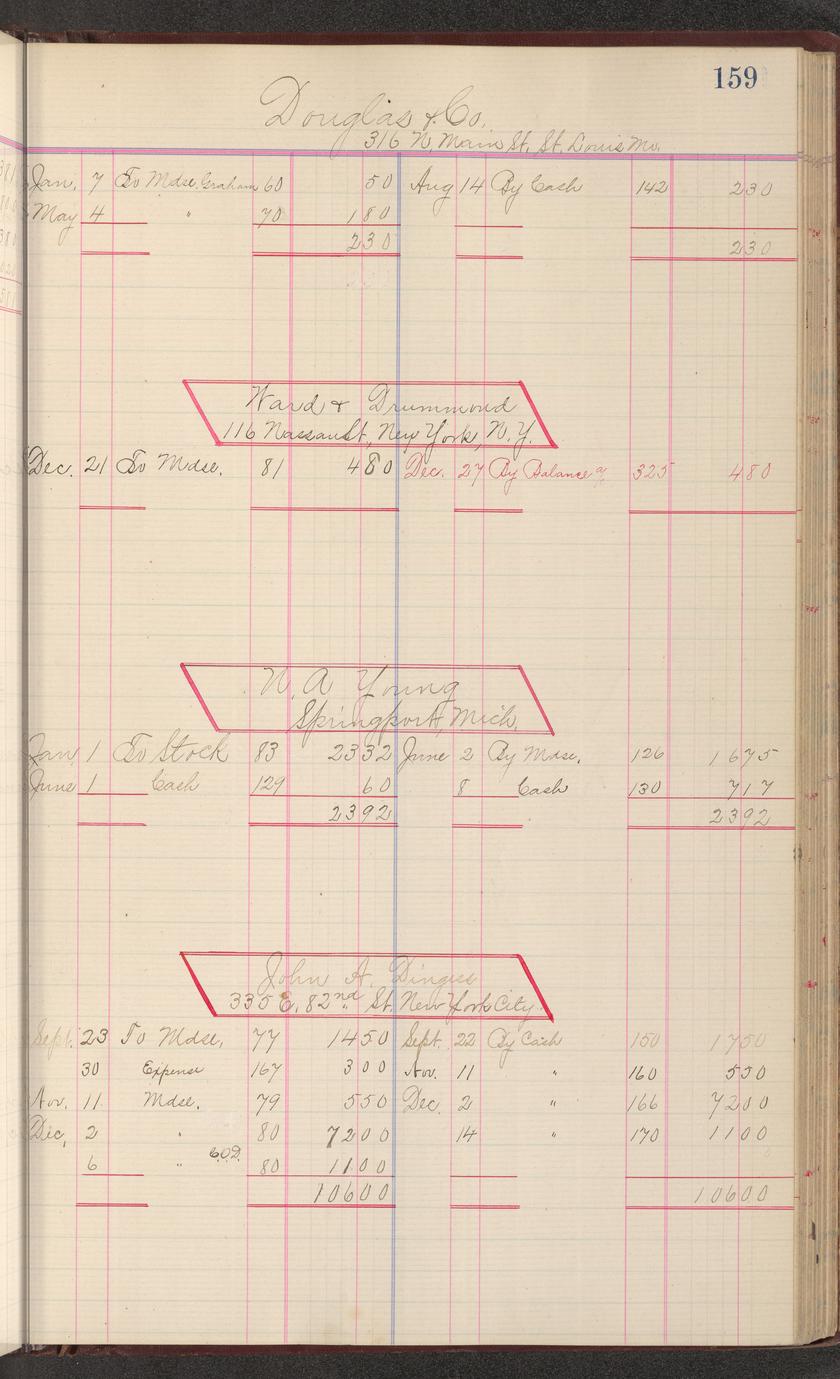 159
Douglas & Co.
316 N. Main St. St. Louis Mo.
Jan. 7 To Mdse. Graham 60 50 Aug 14 By Cash 142 230
May 4 " 70 180
230 230
Ward & Drummond
116 Nassau St, New York, N.Y.
Dec. 21 To Mdse. 81 480 Dec. 27 By Balance a/c 325 480
N. A Young
Springport, Mich.
Jan 1 To Stock 83 2332 June 2 By Mdse. 126 1675
June 1 Cash 129 60 8 Cash 130 717
2392 2392
John A. Dingee
335 E. 82nd St. New York City.
Sept. 23 To Mdse. 77 1450 Sept. 22 By Cash 150 1750
30 Expense 167 300 Nov. 11 " 160 550
Nov. 11 Mdse. 79 550 Dec. 2 " 166 7200
Dec. 2 " 80 7200 14 " 170 1100
6 " C.O.D. 80 1100
10600 10600